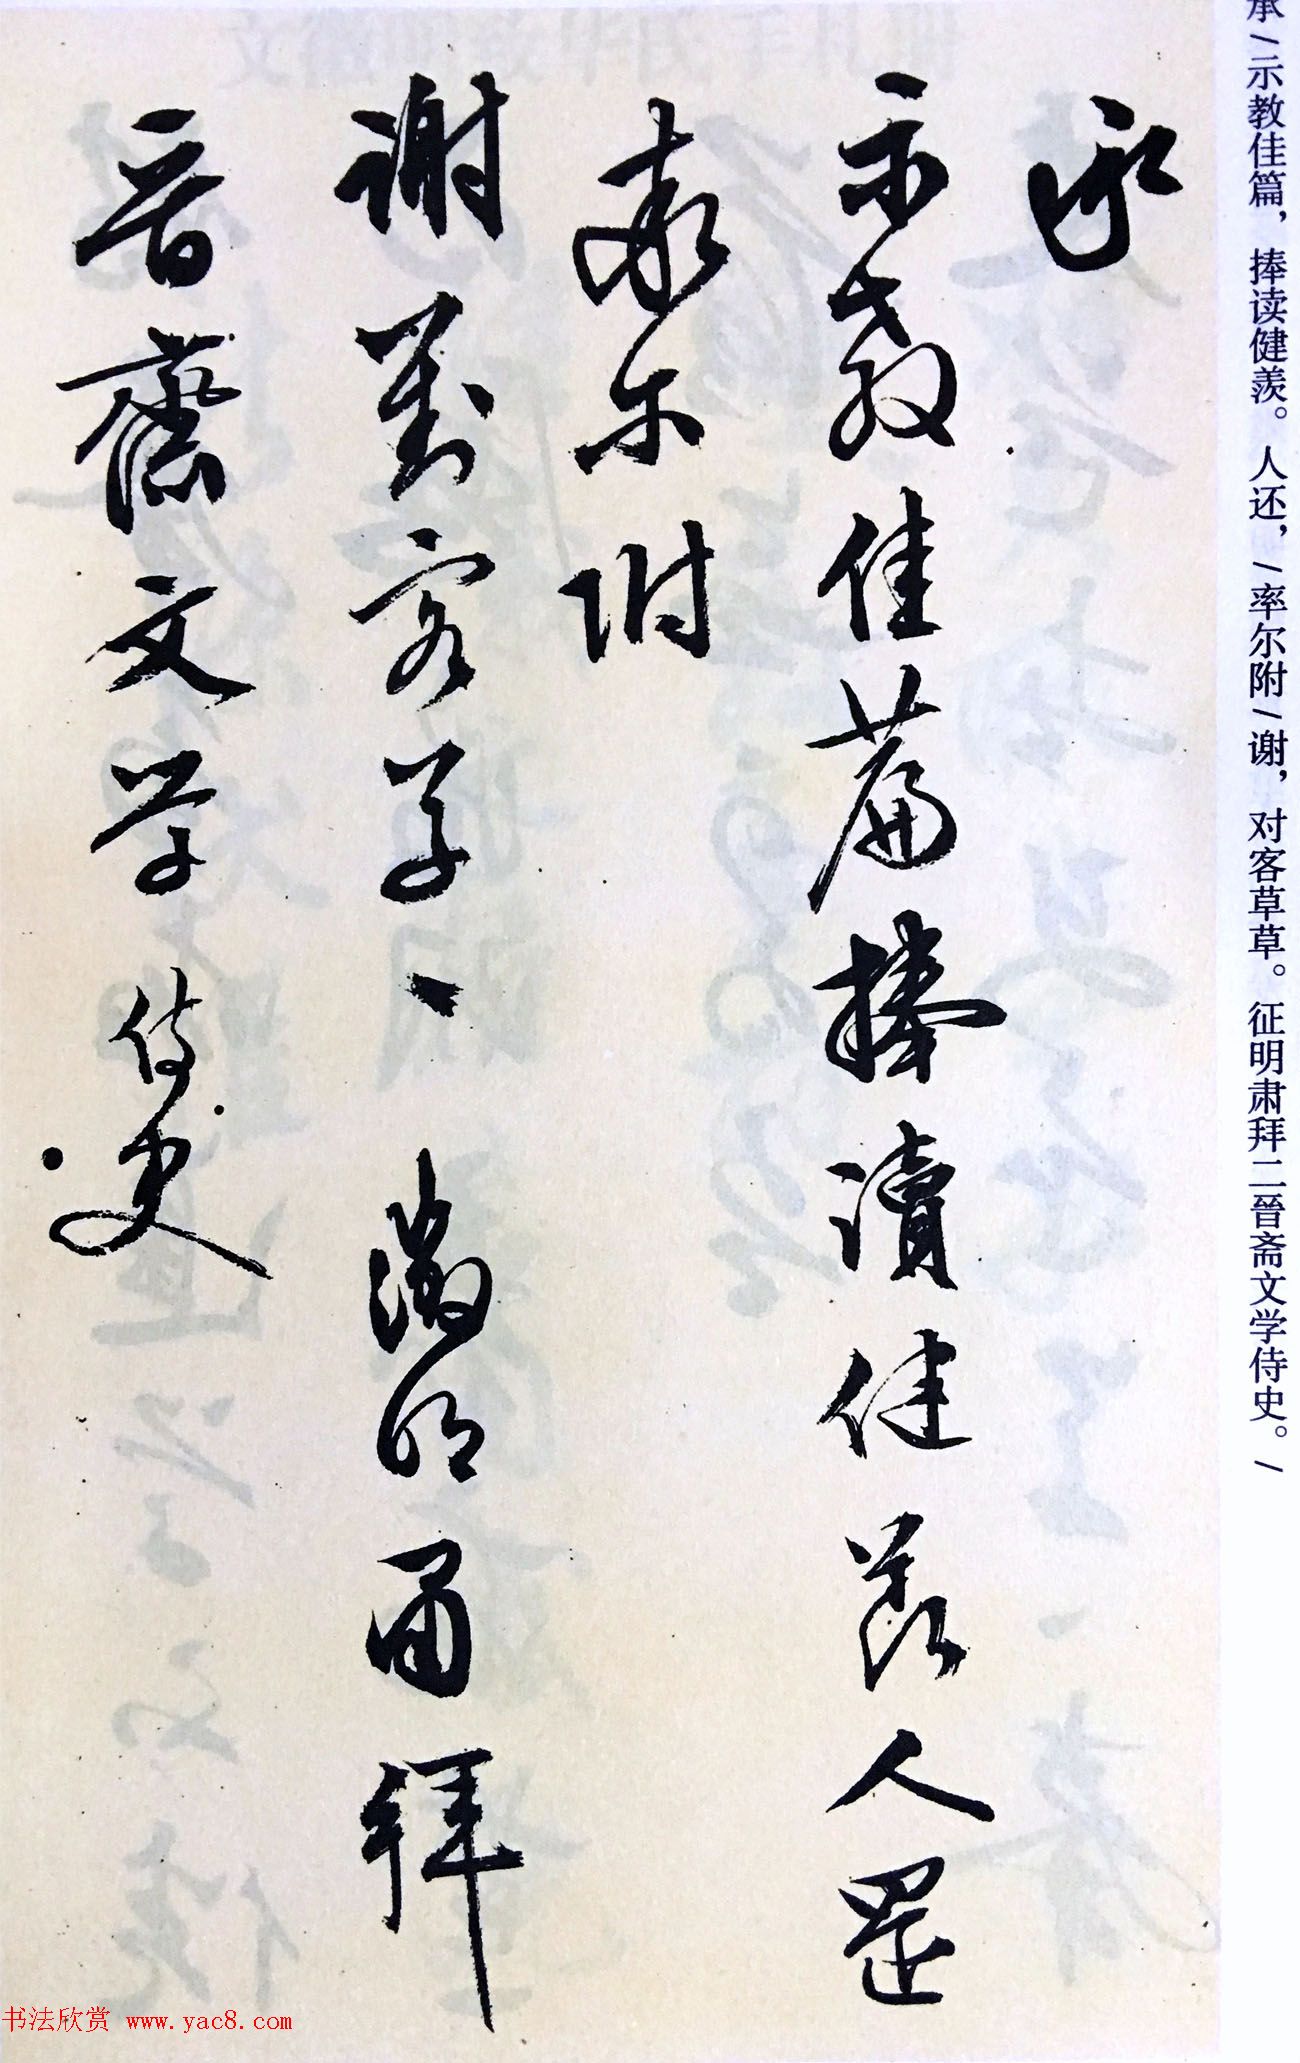 承/示教佳篇，捧读健羡。人还，/率尔附/谢，对客草草。征明肃拜二晉斋文学侍史。/
承
示教佳篇捧讀健羡人還
率尔附
謝對客草〻徵明肅拜
晉齋文学侍史
书法欣赏 www.yac8.com